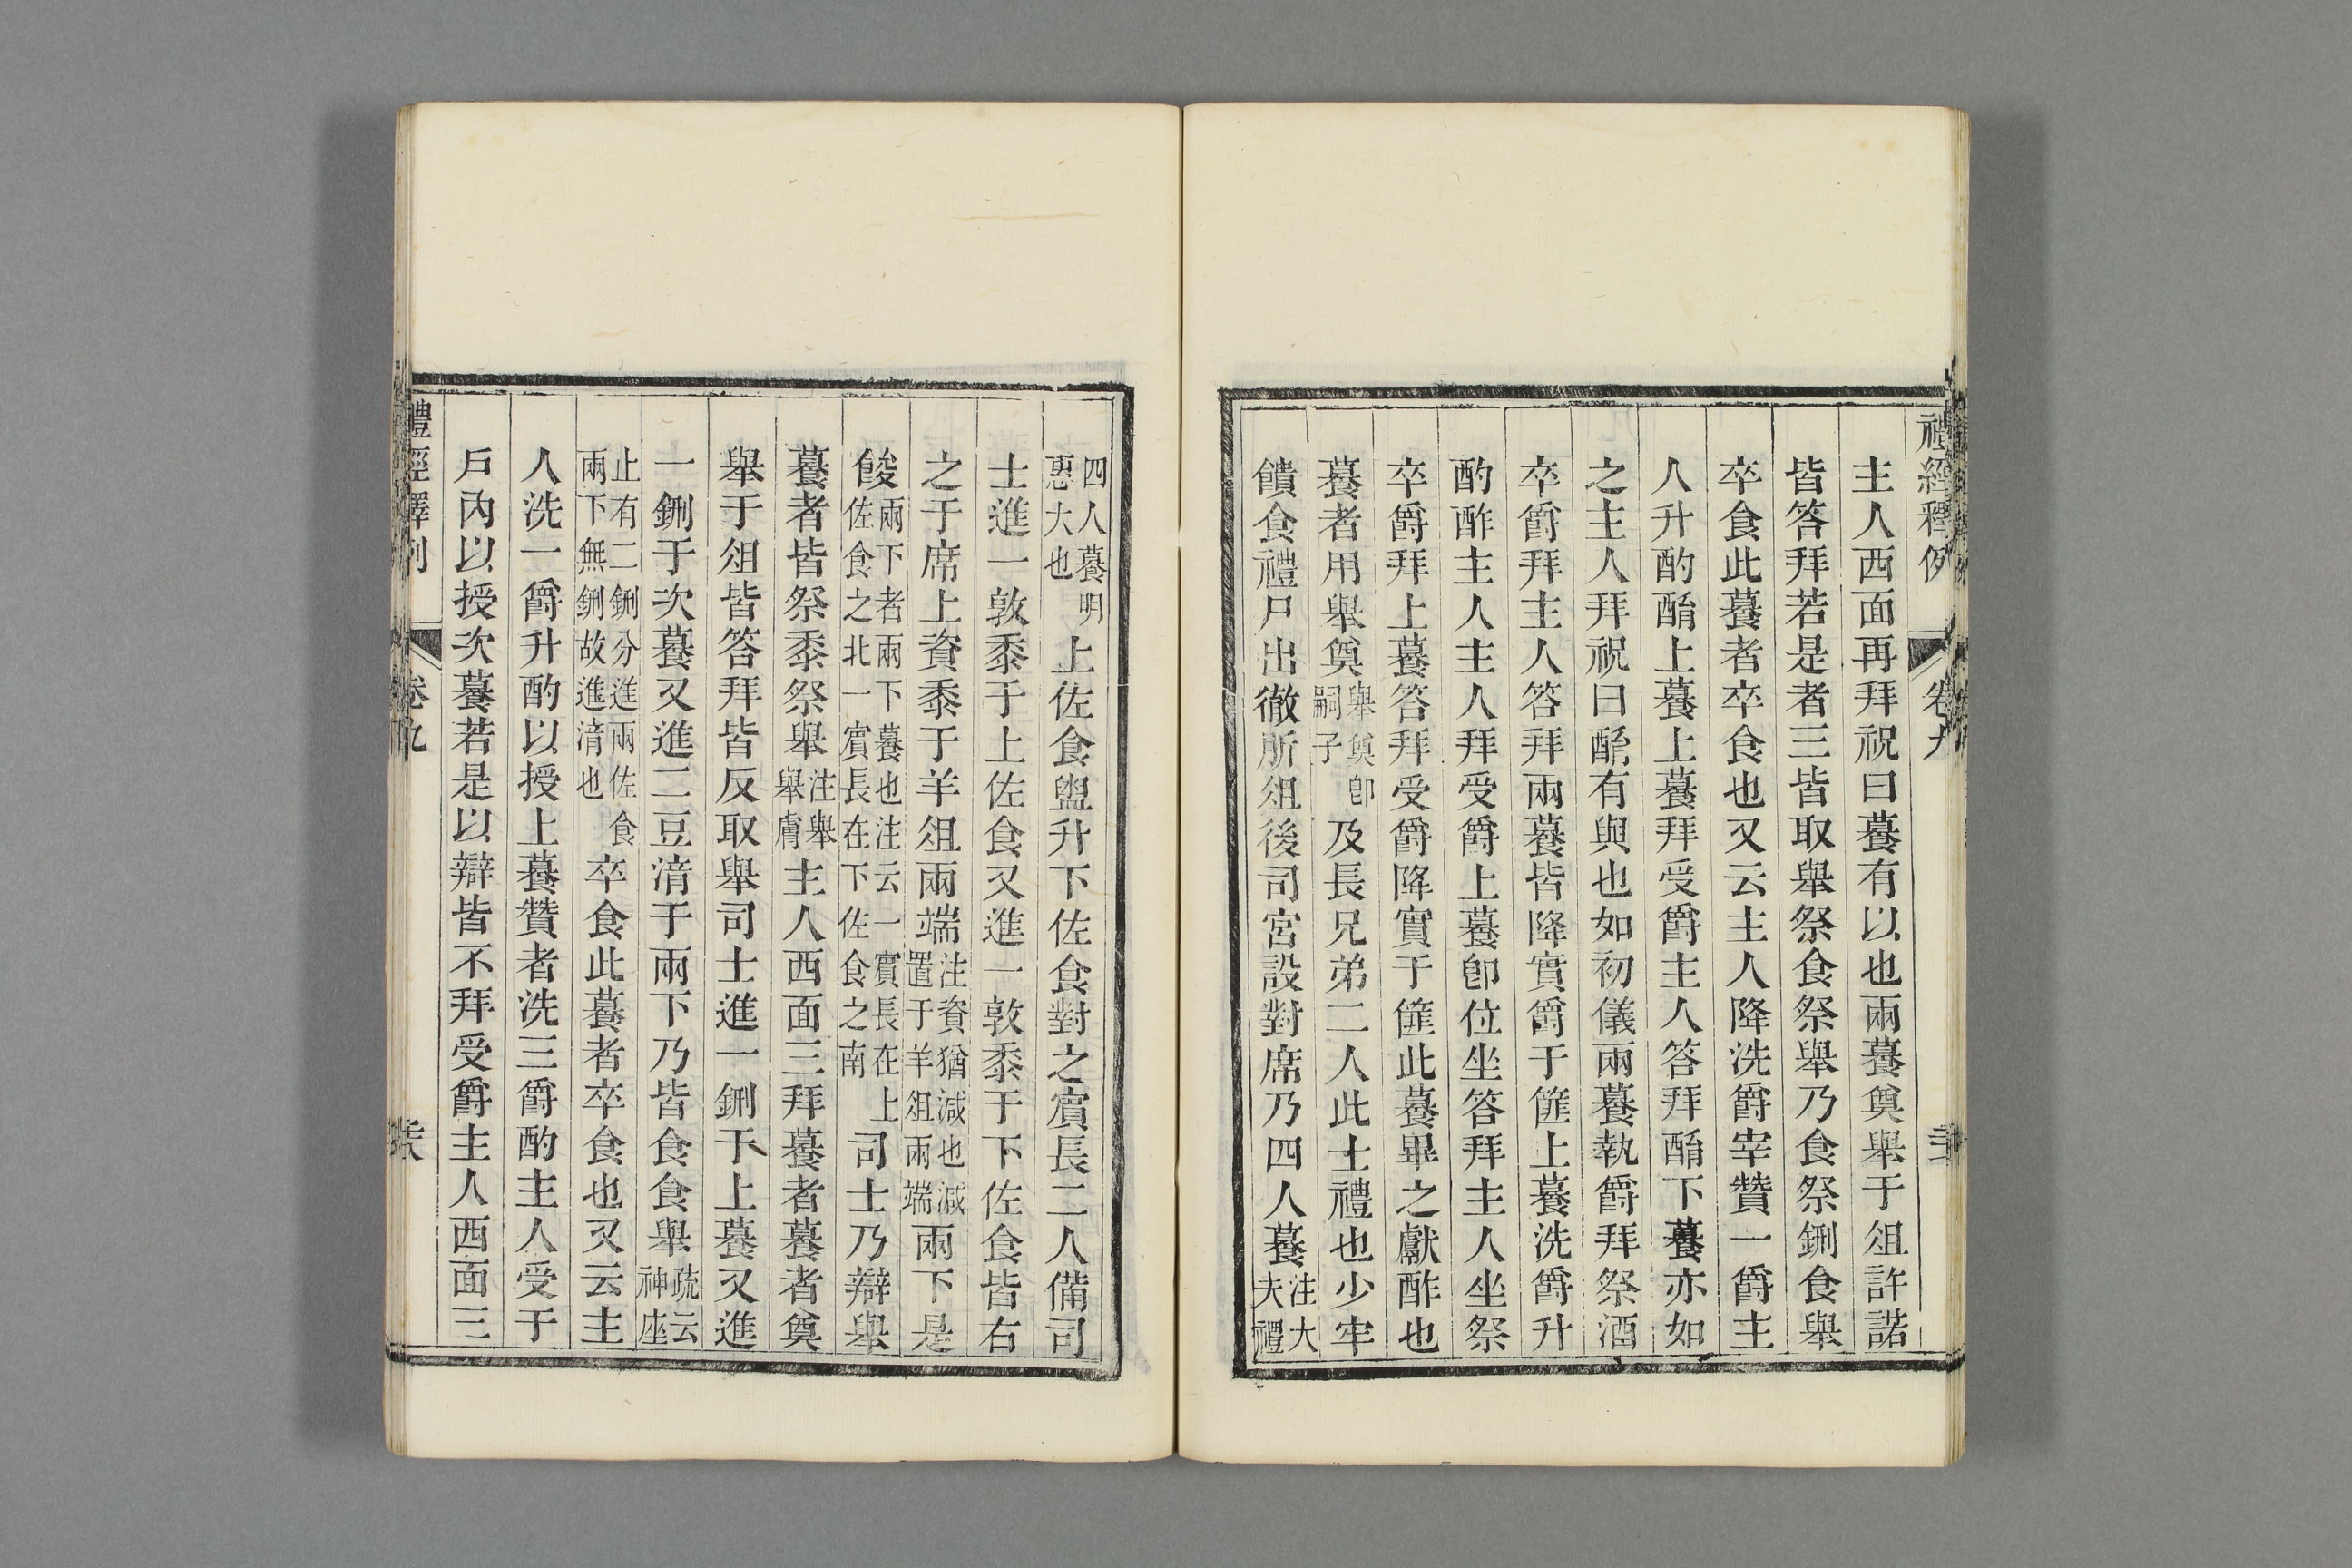 禮經釋例 卷九
主人西面再拜祝曰䕩有以也兩䕩奠舉于俎許諾
皆答拜若是者三皆取舉祭食祭舉乃食祭鉶食舉
卒食此䕩者卒食也又云主人降洗爵宰贊一爵主
人升酌酳上䕩上䕩拜受爵主人答拜酳下䕩亦如
之主人拜祝曰酳有與也如初儀兩䕩執爵拜祭酒
卒爵拜主人答拜兩䕩皆降實爵于篚上䕩洗爵升
酌酢主人主人拜受爵上䕩卽位坐答拜主人坐祭
卒爵拜上䕩答拜受爵降實于篚此䕩畢之獻酢也
䕩者用舉奠舉奠卽嗣子及長兄弟二人此士禮也少牢
饋食禮尸出徹所俎後司宮設對席乃四人䕩注大夫禮
四人䕩明惠大也上佐食盥升下佐食對之賓長二人備司
士進一敦黍于上佐食又進一敦黍于下佐食皆右
之于席上資黍于羊俎兩端注資猶減也減置于羊俎兩端兩下是
餕兩下者兩下䕩也注云一賓長在上佐食之北一賓長在下佐食之南司士乃辯舉
䕩者皆祭黍祭舉注舉舉膚主人西面三拜䕩者䕩者奠
舉于俎皆答拜皆反取舉司士進一鉶于上䕩又進
一鉶于次䕩又進二豆湆于兩下乃皆食食舉疏云神座
止有二鉶分進兩佐食兩下無鉶故進湆也卒食此䕩者卒食也又云主
人洗一爵升酌以授上䕩贊者洗三爵酌主人受于
戶內以授次䕩若是以辯皆不拜受爵主人西面三
禮經釋例 卷九